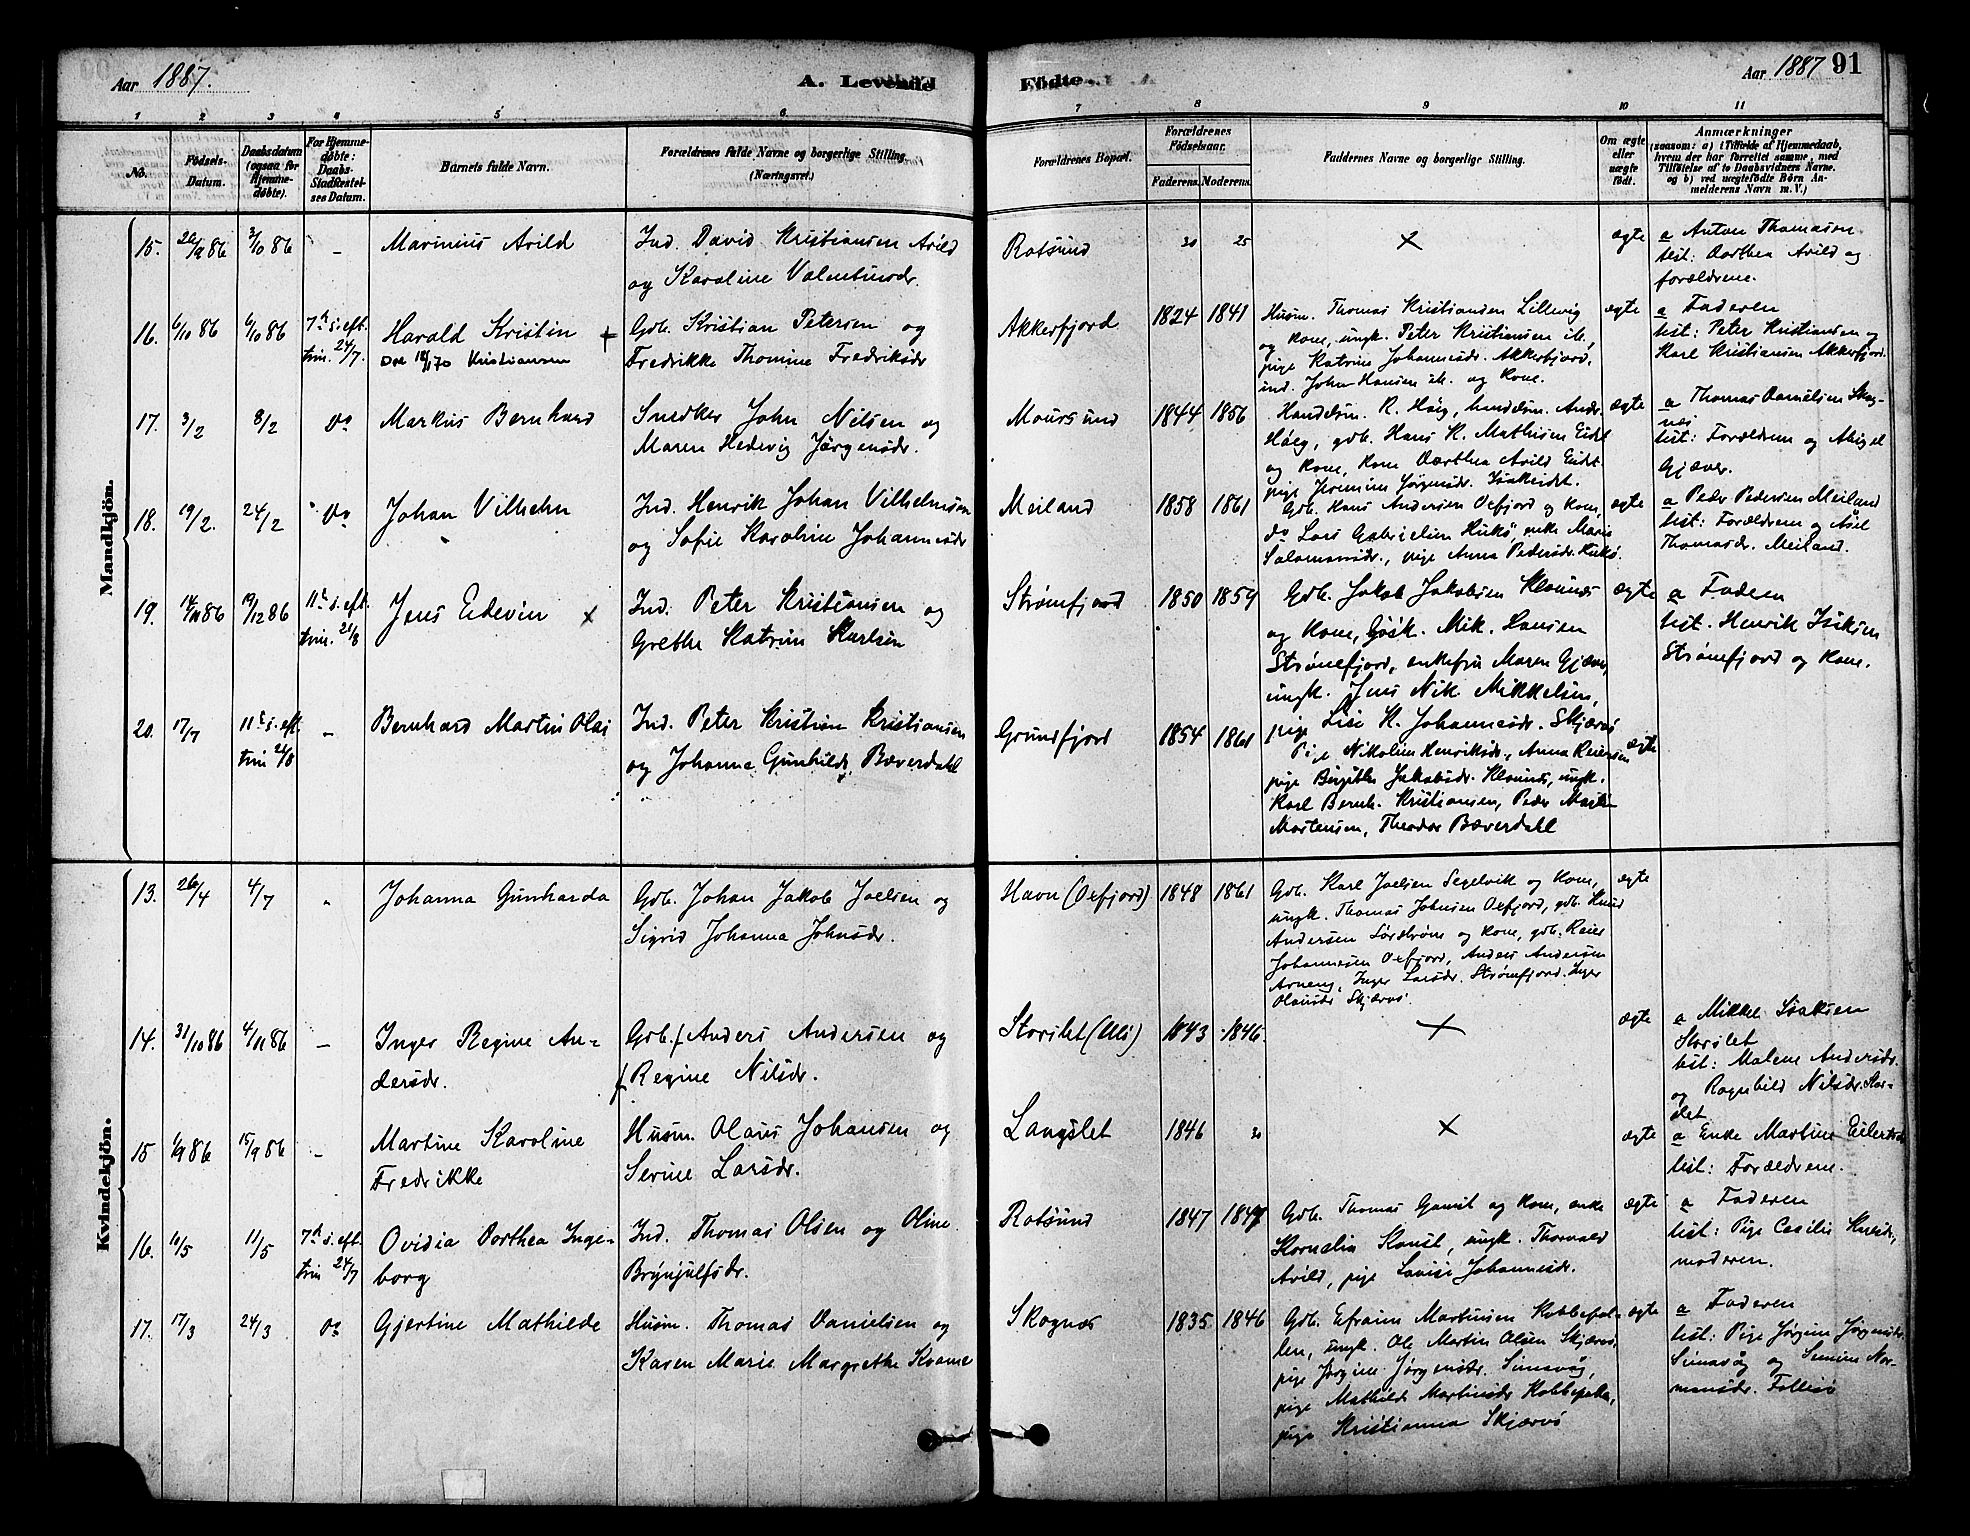 Aar 1887.
A. Levende
Födte.
Aar 1887
91
1 2 3 4 5 6 7 8 9 10 11
No.
Födsels-
Datum.
Daabsdatum
(ogsaa for
Hjemme-
döbte).
For Hjemme-
döbte:
Daabs-
Stadfæstel-
ses Datum.
Barnets fulde Navn.
Forældrenes fulde Navne og borgerlige Stilling.
(Næringsvei.)
Forældrenes Bopæl.
Forældrenes
Födselsaar.
Faderens. Moderens.
Faddernes Navne og borgerlige Stilling.
Om ægte
eller
uægte
födt.
Anmærkninger
(saasom: a) i Tilfælde af Hjemmedaab,
hvem der har forrettet samme, med
Tilföielse af to Daabsvidners Navne,
og b) ved uægtefödte Börn An-
melderens Navn m. V.)
Mandkjön.
15. 26/9 86 3/10 86 - Marinius Arild
Ind. David Kristiansen Arild
og Karoline Valentinsdr.
Rotsund 30 25 × ægte
a Anton Thomasen
test: Dorthea Arild og
forældrene.
16. 6/10 86 6/10 86 7de s. eft.
trin. 24/7.
Harald Kristin +
Kristiansen
Gdb. Kristian Petersen og
Fredrikke Thomine Fredriksdr
Akkerfjord 1824 1841
Husm. Thomas Kristiansen Lillevig
og kone, ungk. Peter Kristiansen ib.,
pige Katrine Johannesdr. Akkerfjord,
ind. John Hansen ib. og kone.
ægte
a Faderen
test: Peter Kristiansen og
Karl Kristiansen Akkerfjord.
17. 3/2 8/2 Do Markus Bernhard
Snedker John Nilsen og
Maren Hedevig Jørgensdr.
Moursund 1844 1856
Handelsm. R. Høeg, handelsm. Andr.
Høeg, gdb. Hans K. Mathisen Eidet
og kone, kone Dorthea Arild Eidet
pige Jørgensdr. Isakeidet.
ægte
a Thomas Danielsen Skog-
nes
test: Forældrene og Abigel
Gjæver.
18. 19/2. 24/2 Do Johan Vilhelm
Ind. Henrik Johan Vilhelmsen
og Sofie Karoline Johannesdr
Meiland 1858 1861
Gdb. Hans Andersen Oxfjord og kone,
do Lars Gabrielsen Kukø, enke Marie
Salomonsdr., pige Anna Pedersdr. Kukø.
ægte
a Peder Pedersen Meiland
test: Forældrene og
Thomasdr. Meiland.
19. 14/11 86 19/12 86 11te s. eft.
trin. 21/8
Jens Edevin ×
Ind. Peter Kristiansen og
Grethe Katrine Karlsen
Strømfjord 1850 1859
Gdb. Jakob Jakobsen Klounes
og kone, Mik. Hansen
Strømfjord, enkefru Maren Gjæver,
ungk. Jens Nik Mikkelsen,
pige Lise K. Johannesdr. Skjærvø
ægte
a Faderen
test. Henrik Isaksen
Strømfjord og kone.
20. 17/7 11te s. eft.
trin 21/8 - Bernhard Martin Olai
Ind. Peter Kristian Kristiansen
og Johanna Gunhilds. Bæverdahl
Grundfjord 1854 1861
Pige Nikoline Henriksdr., Anna Reiersen
pige Birgitte Jakobsdr. Klounes, ungk.
Karl Bernh. Kristiansen, Peder Martin
Mortensen, Theodor Bæverdahl
ægte
Kvindekjön.
13. 26/4 4/7 „ Johanna Gunharda
Gdb. Johan Jakob Joelsen og
Sigrid Johanna Johnsdr.
Havn (Oxfjord) 1848 1861
Gdb. Karl Joelsen Segelvik og kone,
ungk. Thomas Johnsen Oxfjord, gdb. Knud
Andersen Sørstrøm og kone, gdb. Reier
Johannesen Oxfjord, Anders Andersen
Arneng, Inger Larsdr. Strømfjord. Inger
Olausdr Skjærvø.
ægte
14. 31/10 86 4/11 86 - Inger Regine An-
dersdr.
Gdb. f Anders Andersen og
f Regine Nilsdr.
Storslet (Uló) 1843 1846. × ægte
a Mikkel Isaksen
Storslet
test: Malene Andersdr.
og Ragnhild Nilsdr. Stor-
slet
15 6/9 86 15/9 86 - Martine Karoline
Fredrikke
Husm. Olaus Johansen og
Serine Larsdr.
Langslet 1846 30 × ægte
a Enke Martine Eilertsdr
test: Forældrene.
16. 10/5 11/5 7de s. eft.
trin 24/7
Ovidia Dorthea Inge-
borg
Ind. Thomas Olsen og Oline
Brynjulfsdr.
Rotsund 1847 1847
Gdb. Thomas Gamst og kone, enke
Kornelia Konst, ungk. Thorvald
Arild, pige Lovise Johannesdr.
ægte
a Faderen
test: Pige Cecilie Knutsdr,
moderen.
17. 17/3 24/3 Do Gjertine Mathilde
Husm. Thomas Danielsen og
Karen Marie Margrethe Kvame
Skognæs 1835 1846
Gdb. Efraim Martinsen Kobbepol-
len, ungk. Ole Martin Olsen Skjærvø,
pige Jørgine Jørgensdr. Simavåg,
pige Mathilde Martinsdr Kobbepollen,
pige Kristianna Skjærvø
ægte
a Faderen
test: Pige Jørgine Jørgensdr
Simavåg og Simine Nor-
mansdr. Follesø